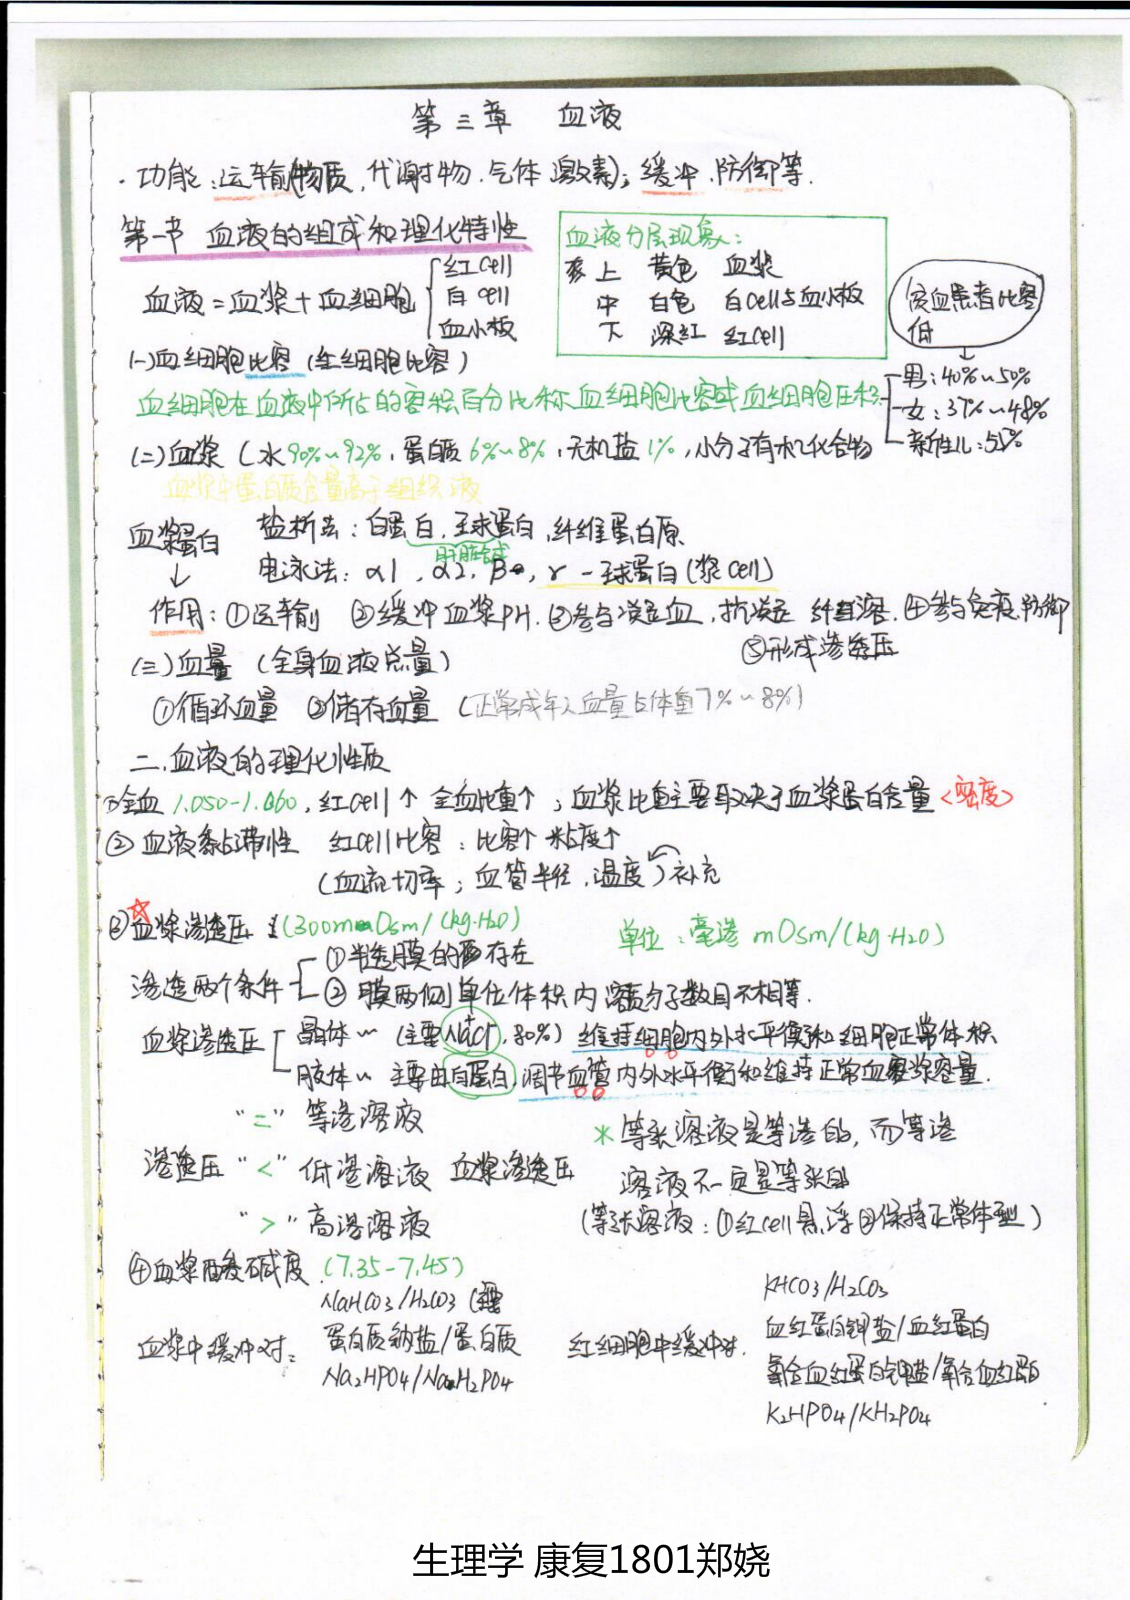 第三章 血液
·功能:运输(物质、代谢物、气体、激素);缓冲、防御等.
第一节 血液的组成和理化特性
血液=血浆+血细胞
红cell
白cell
血小板
血液分层现象:
上 黄色 血浆
中 白色 白cell与血小板
下 深红 红cell
贫血患者比容低
(一)血细胞比容(红细胞比容)
血细胞在血液中所占的容积百分比称血细胞比容或血细胞压积
男:40%~50%
女:37%~48%
新生儿:55%
(二)血浆(水90%~92%,蛋白质6%~8%,无机盐1%,小分子有机化合物
血浆中蛋白质含量高于组织液
血浆蛋白
盐析法:白蛋白,球蛋白,纤维蛋白原
肝脏合成
电泳法:α1,α2,β,γ-球蛋白(浆cell)
作用:①运输 ②缓冲血浆PH.③参与凝血,抗凝 纤溶.④参与免疫防御
⑤形成渗透压
(三)血量(全身血液总量)
①循环血量 ②储存血量(正常成年人血量占体重7%~8%)
二.血液的理化性质
①全血1.050-1.060,红cell↑全血比重↑;血浆比重主要取决于血浆蛋白含量<密度>
②血液黏滞性 红cell比容:比容↑粘度↑
(血流切率;血管半径,温度)补充
③☆血浆渗透压(300mOsm/(kg·H2O)
单位:毫渗 mOsm/(kg·H2O)
渗透两个条件
①半透膜的存在
②膜两侧单位体积内溶质分子数目不相等.
血浆渗透压
晶体~(主要Na+Cl-,80%)维持细胞内外水平衡和细胞正常体积
胶体~ 主要由白蛋白,调节血管内外水平衡和维持正常血浆容量.
"=" 等渗溶液
渗透压"<"低渗溶液 血浆渗透压
">"高渗溶液
*等张溶液是等渗的,而等渗
溶液不一定是等张的
(等张溶液:①红cell悬浮②保持正常体型)
④血浆酸碱度.(7.35-7.45)
血浆中缓冲对:
NaHCO3/H2CO3
蛋白质钠盐/蛋白质
Na2HPO4/NaH2PO4
红细胞中缓冲对.
KHCO3/H2CO3
血红蛋白钾盐/血红蛋白
氧合血红蛋白钾盐/氧合血红蛋白
K2HPO4/KH2PO4
生理学 康复1801郑娆